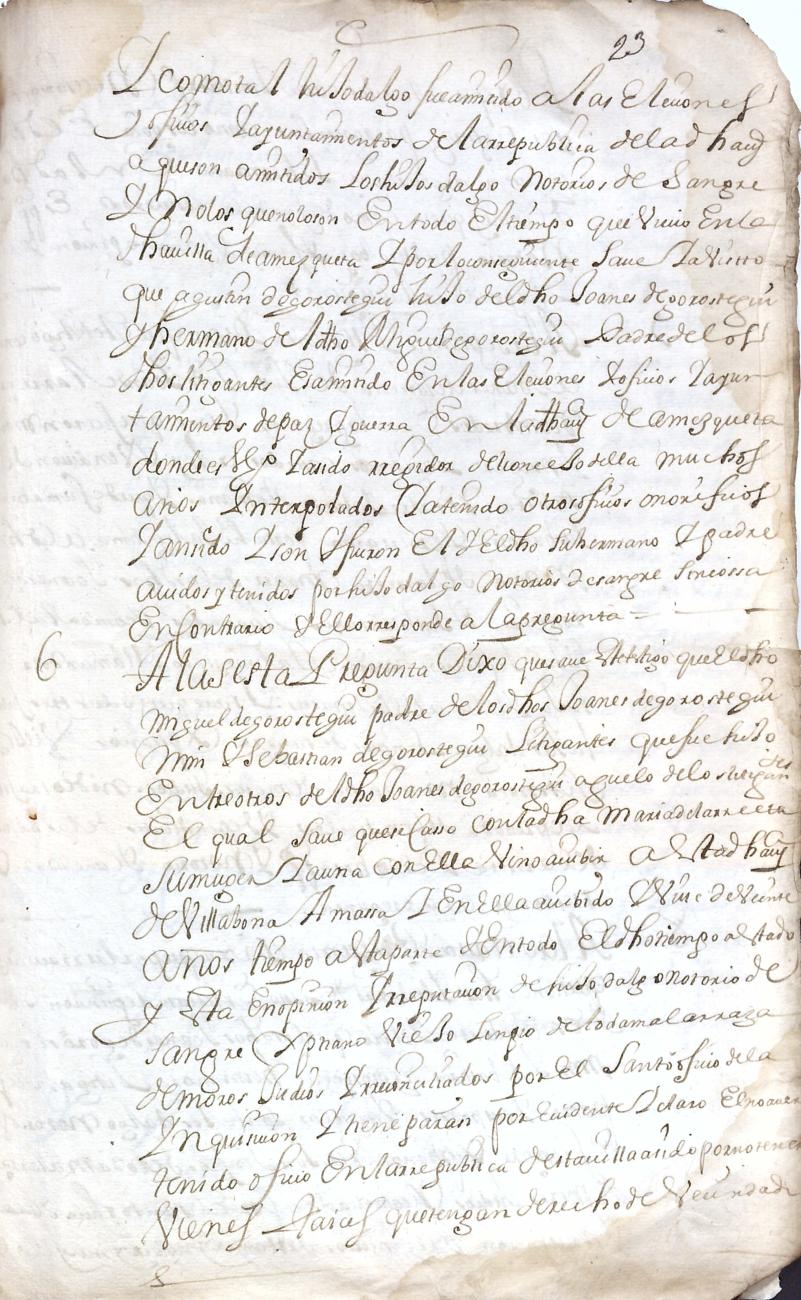 23
Y como tal hijodalgo fue amitido a las Eleciones
y ofiçios Y ayuntamientos de la rrepublica de la dha vª
a que son amitidos Los hijos dalgo Notorios de Sangre
Y No los que no lo son En todo El tiempo que vivio En la
dha villa de amezqueta Y por lo consiguiente save Ya visto
que agustin de gorostegui hijo del dho Joanes de gorostegui
Y hermano del dho Miguel de gorostegui Padre de los
dhos litigantes Es amitido En las Eleciones Y ofiçios Y ayun
tamientos de paz Y guerra En la dha vª de amezqueta
donde es Vº Y a sido rregidor del concejo della muchos
años Ynterpolados Y a tenido otros ofiçios onorificos
Y an sido Y son Y fueron El Y El dho su hermano Y padre
avidos y tenidos por hijosdalgo Notorios de sangre sin cossa
En Contrario Y Esto rresponde a la pregunta =
6 A la sesta Pregunta Dixo que save Este testigo que El dho
miguel de gorostegui padre de los dhos Joanes de gorostegui
Min Y Sebastian de gorostegui Litigantes que fue hijo
Entre otros del dho Joanes de gorostegui aguelo de los litigantes
El qual save que se Casso con la dha Maria de larrecta
su muger Y a una con Ella Vino a vivir a Esta dha vª
de Villabona Amassa Y En Ella a vibido Y Vive de Veinte
años tiempo a Esta parte Y En todo El dho tiempo a Estado
y Esta En opinion Y rreputacion de hijo dalgo Notorio de
sangre Xptiano Viejo Linpio de toda mala rraza
de moros Judios Y rreconciliados por El Santo ofiçio de la
Ynquisicion Y tiene para si por Evidente Y claro El no aver
tenido ofiçio En la rrepublica desta villa a sido por no tener
Vienes Raices que tengan derecho de Vecindad